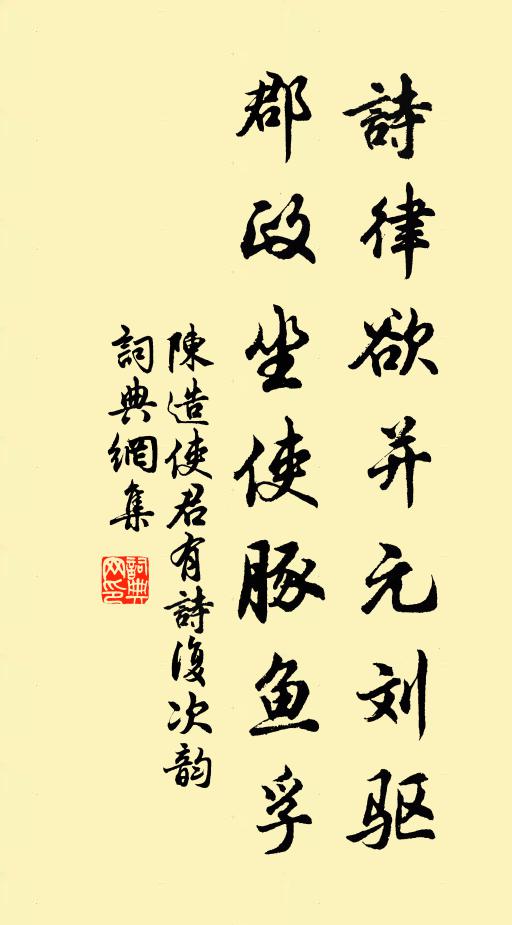 詩律欲并元刘驱
郡政坐使豚鱼孚
陳造使君有詩復次韵
詞典網集
詞典网印